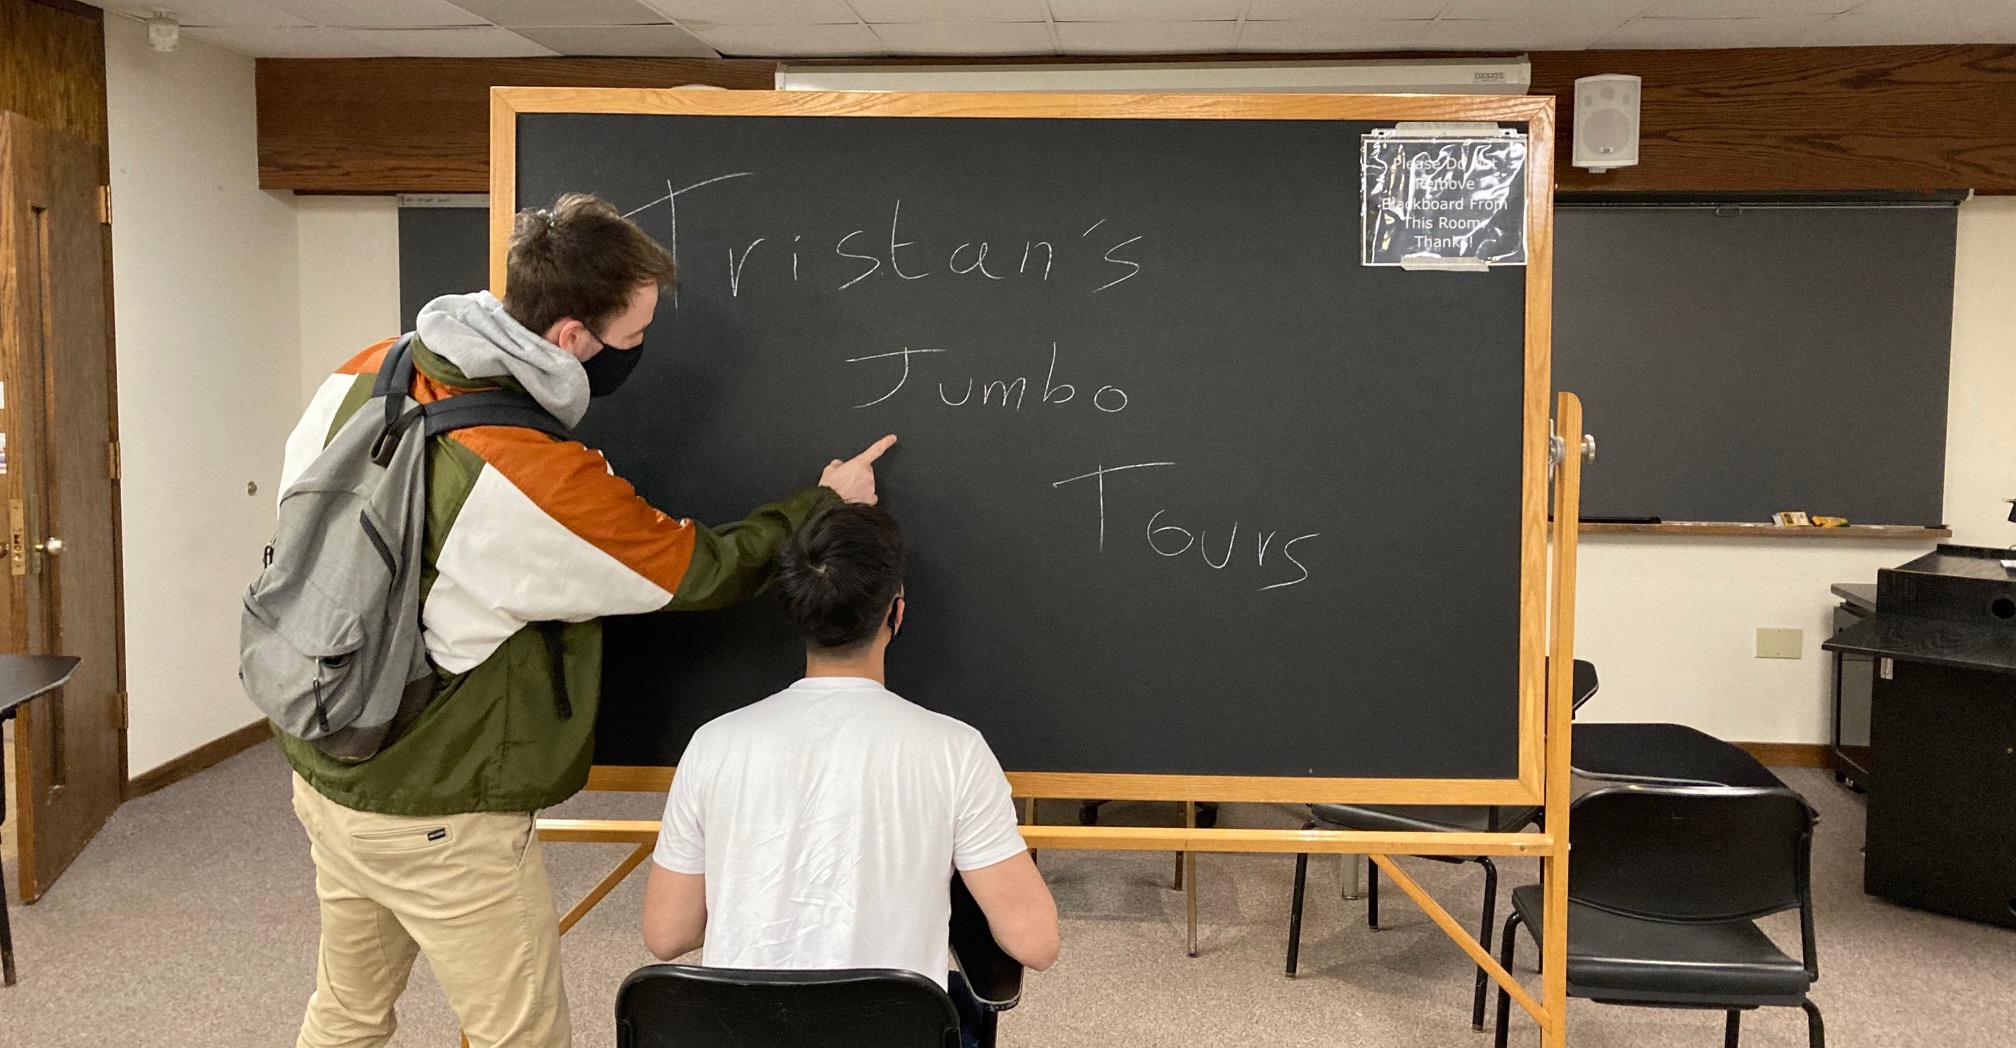 Tristan's
Jumbo
Tours
Please Do Not
Remove
Blackboard From
This Room.
Thanks!
DA-LITE